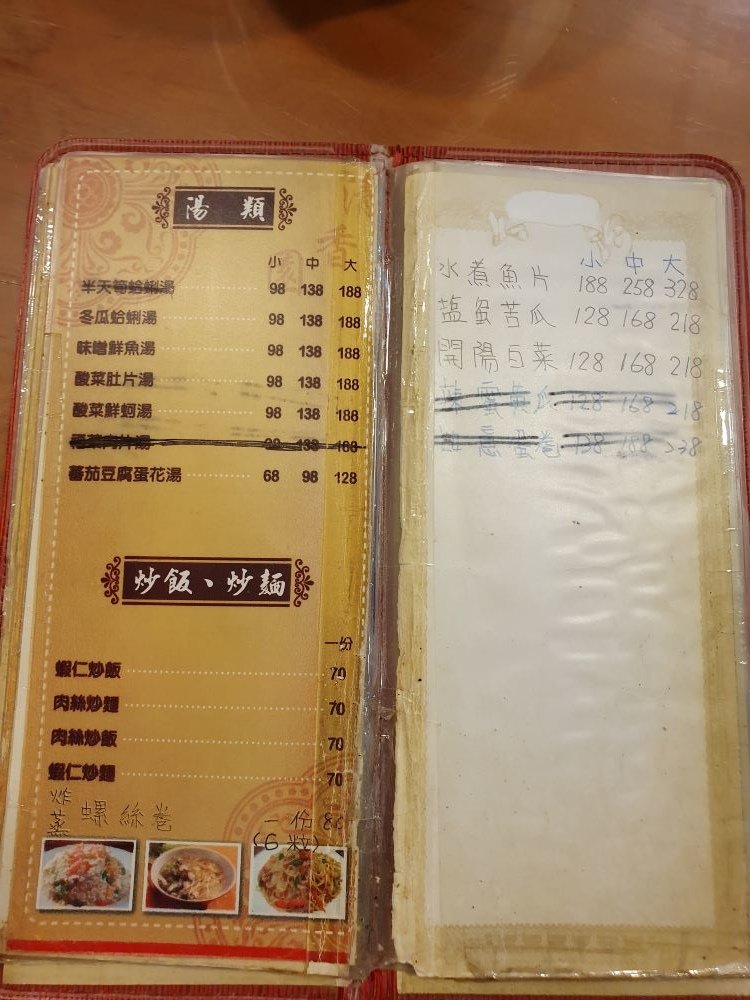 湯 類
小 中 大
半天筍蛤蜊湯 98 138 188
冬瓜蛤蜊湯 98 138 188
味噌鮮魚湯 98 138 188
酸菜肚片湯 98 138 188
酸菜鮮蚵湯 98 138 188
肉片湯 98 138 168
蕃茄豆腐蛋花湯 68 98 128
炒飯、炒麵
一份
蝦仁炒飯 70
肉絲炒麵 70
肉絲炒飯 70
蝦仁炒麵 70
炸
蒸 螺絲卷 一份
(6粒)
小 中 大
水煮魚片 188 258 328
蛋苦瓜 128 168 218
開陽白菜 128 168 218
瓜 128 168 218
意蛋卷 138 188 238